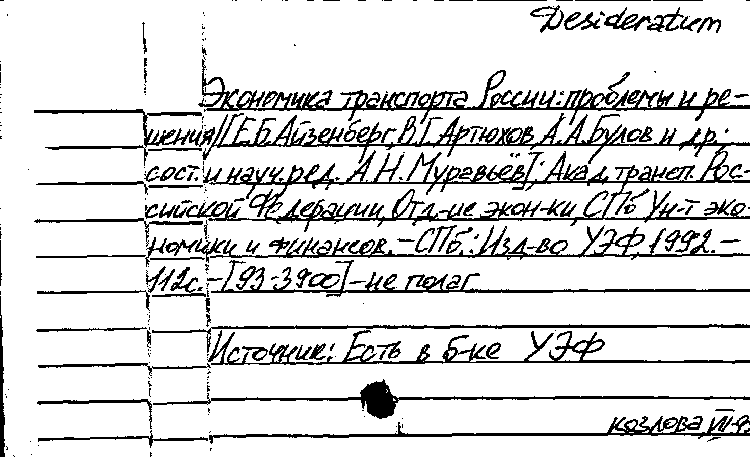 Desideratum
Экономика транспорта России: проблемы и ре-
шения/[Е.Б. Айзенберг, В.Г. Артюхов, А.А. Булов и др.;
сост. и науч. ред. А.Н. Муравьёв]; Акад. трансп. Рос-
сийской Федерации, Отд-ие экон-ки, СПб Ун-т эко-
номики и финансов. – СПб.: Изд-во УЭФ, 1992. –
112с. – [93-3900] – не полаг.
Источник: Есть в б-ке УЭФ
козлова, VII-93